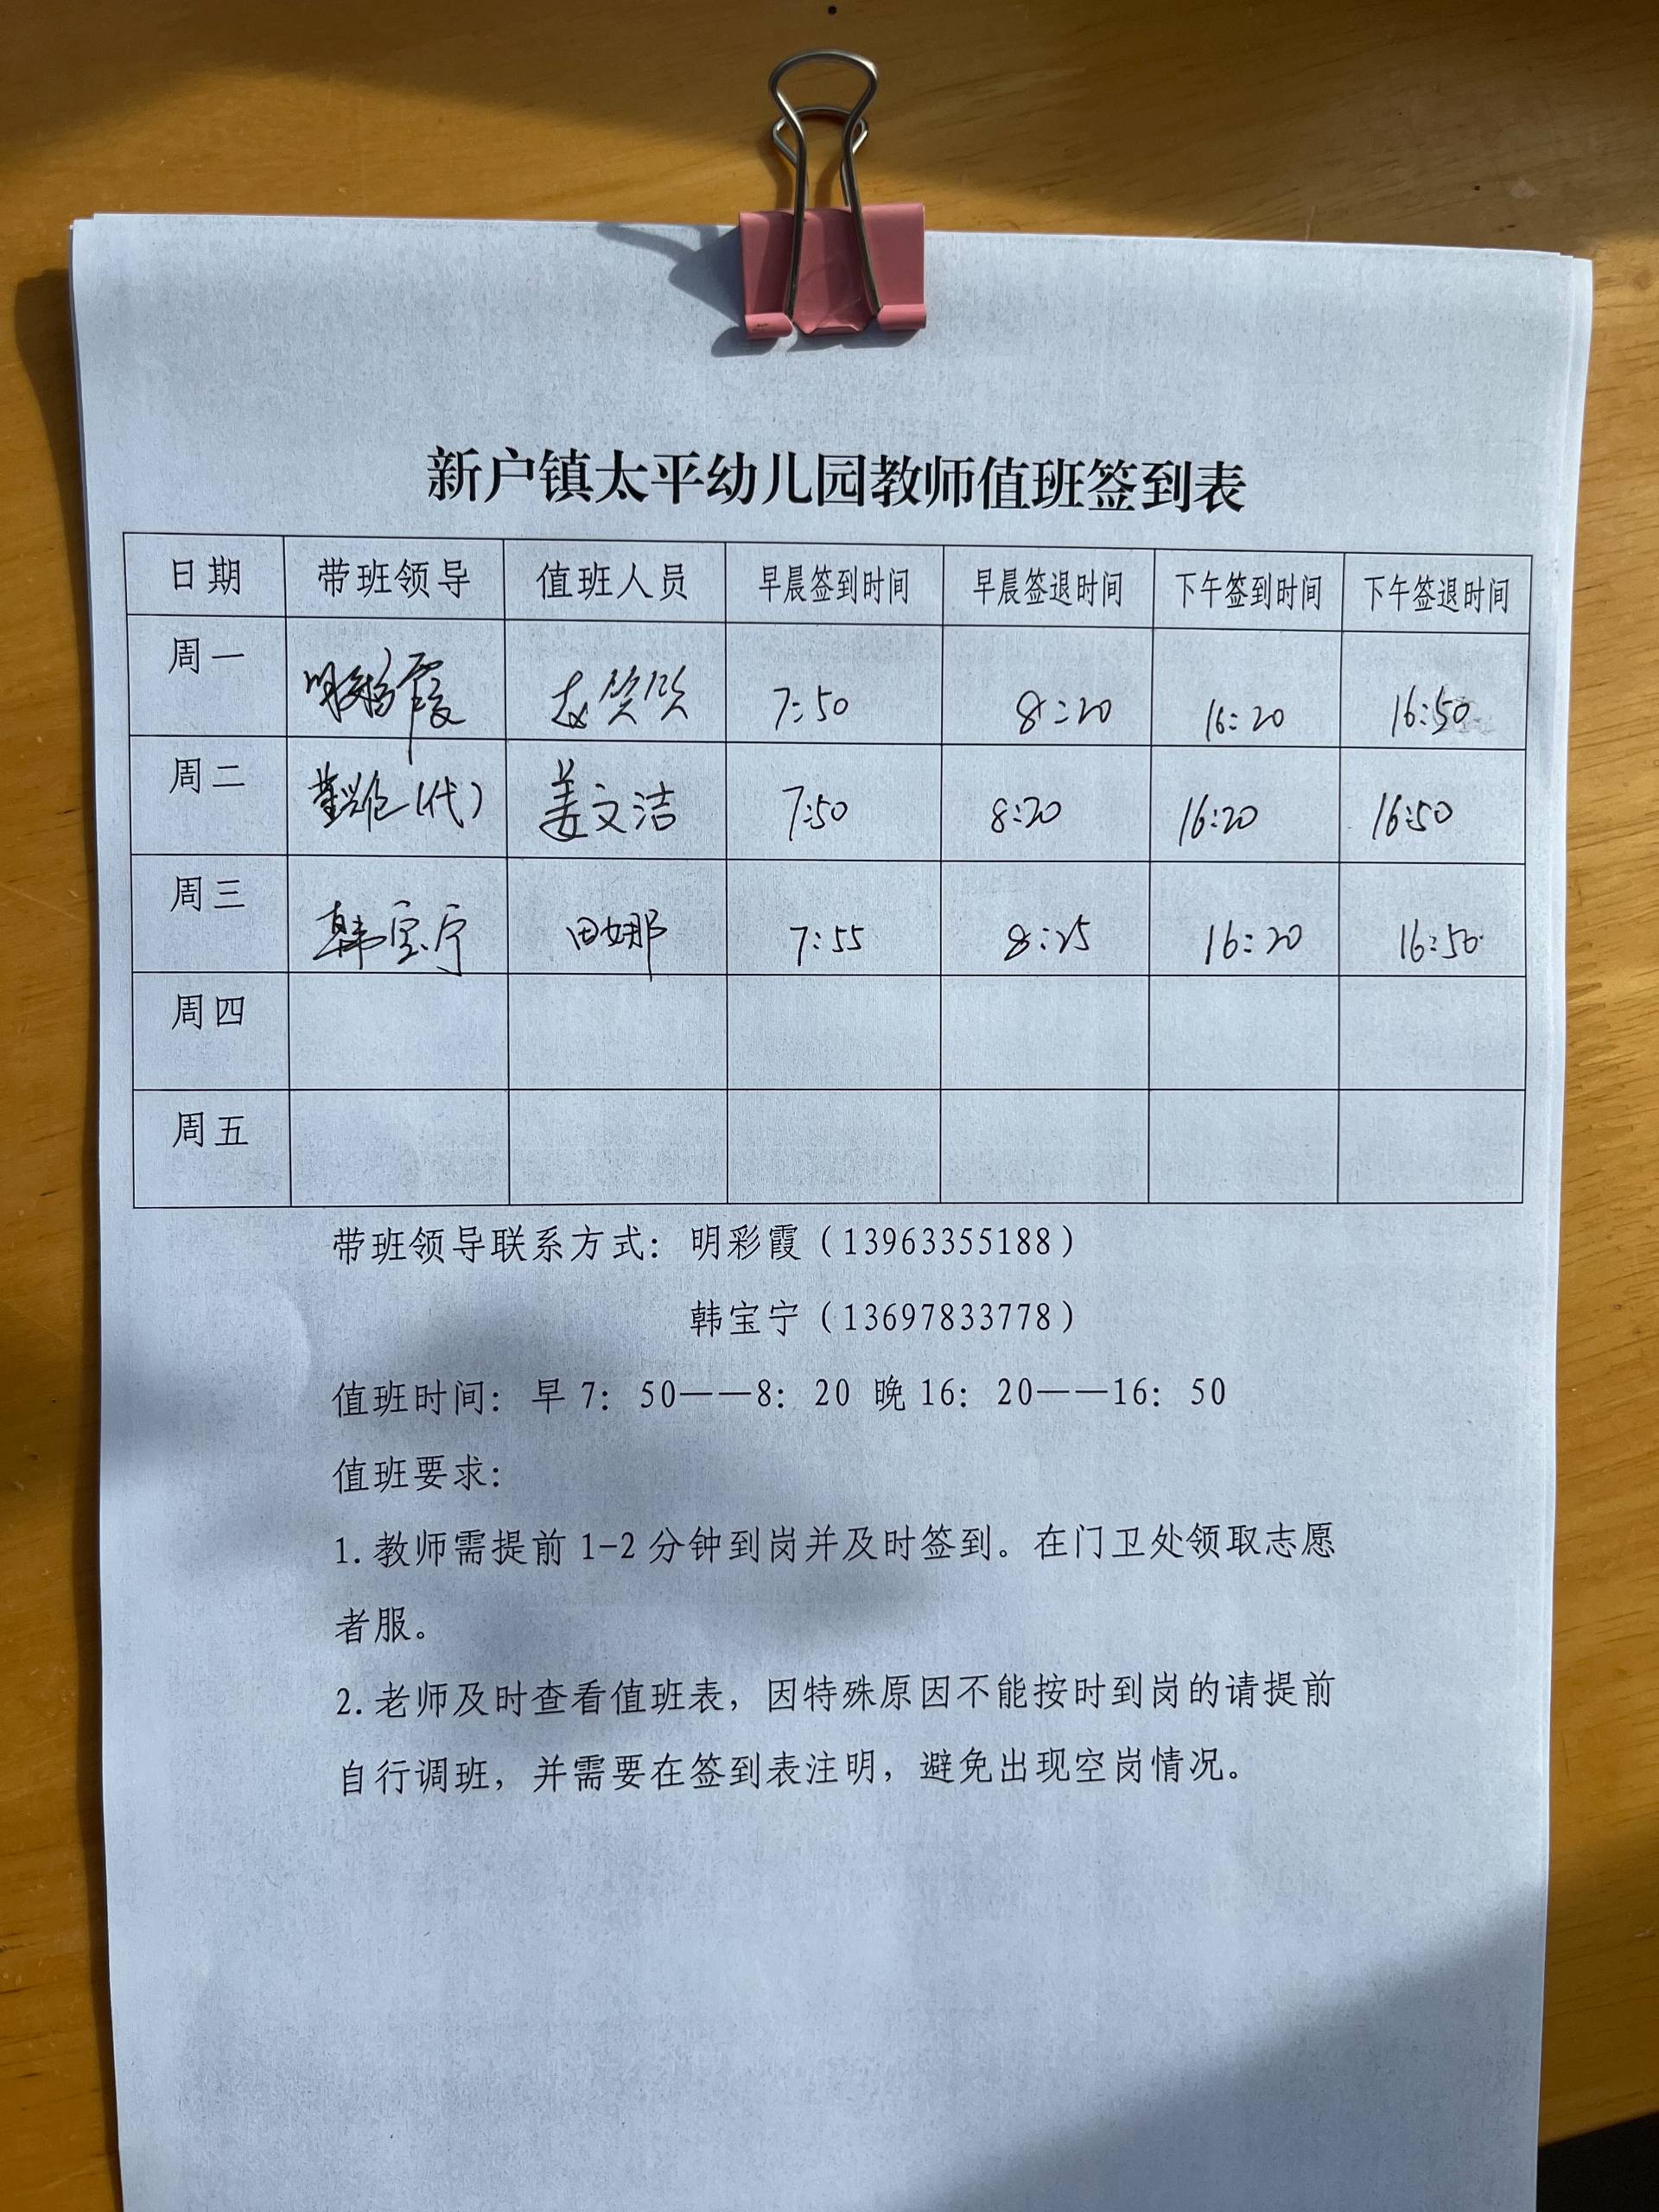 新户镇太平幼儿园教师值班签到表
日期 带班领导 值班人员 早晨签到时间 早晨签退时间 下午签到时间 下午签退时间
周一 明彩霞 7:50 8:20 16:20 16:50
周二 (代) 姜文洁 7:50 8:20 16:20 16:50
周三 韩宝宁 田娜 7:55 8:25 16:20 16:50
周四
周五
带班领导联系方式：明彩霞（13963355188）
韩宝宁（13697833778）
值班时间：早7：50——8：20 晚16：20——16：50
值班要求：
1.教师需提前1-2分钟到岗并及时签到。在门卫处领取志愿
者服。
2.老师及时查看值班表，因特殊原因不能按时到岗的请提前
自行调班，并需要在签到表注明，避免出现空岗情况。